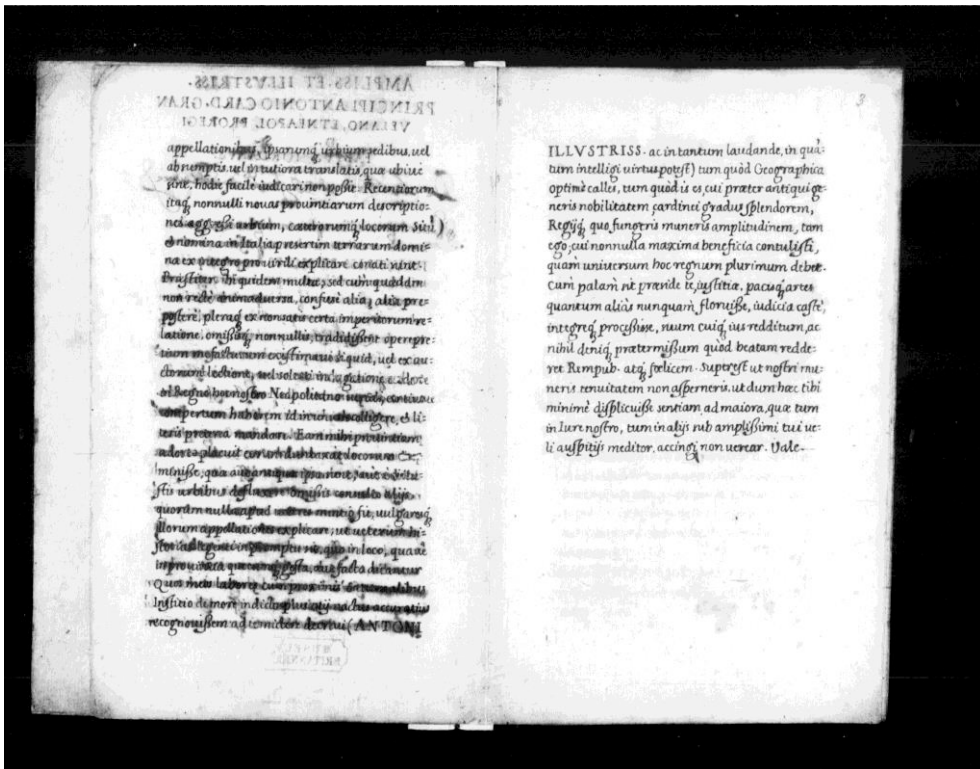 appellationibus, ipsarumq́ urbium sedibus, uel
abruptis, uel in tutiora translatis, quæ ubiue
sint, hodie facile iudicari non possit. Recentiorum
itaq́ nonnulli nouas prouintiarum descriptio-
nes aggressi urbium, cæterorumq́ locorum
nomina in Italia presertim terrarum domi-
na ex integro pro uirili explicare conati sunt.
Præstiter. hi quidem multa; sed cum quædam
non recte animaduersa, confuse alia, alia pre-
postere, pleraq́ ex non satis certa imperitorum re-
latione, omissisq́ nonnullis, tradidissent operepre-
tium me facturum existimaui si quid, uel ex au-
ctorum lectione, uel
in Regno hoc nostro Neapolitano
compertum haberem id colligere, & li-
teris preterea mandare. Eam mihi prouintiam
placuit locorum
minisse, quæ aut antiqua
stis urbibus Omissis consulto alijs
quorum nulla apud ueteres mentio sit, uulgaresq́
illorum appellationes explicare, ut ueterum hi-
storias legenti in promptu sit, quo in loco, quaúe
in prouincia quecunq́ gesta, aut facta dicantur
Quos meos labores cum proximis
Institio de more indicto plus otij nactus accuratius
recognouissem ad te mittere decreui (ANTONI
3
ILLVSTRISS. ac in tantum laudande, in quā-
tum intelligi uirtus potest) tum quòd Geographica
optimè calles, tum quòd is es, cui præter antiqui ge-
neris nobilitatem, cardinei gradus splendorem,
Regijq́, quo fungeris muneris amplitudinem, tam
ego, cui nonnulla maxima beneficia contulisti,
quàm uniuersum hoc regnum plurimum debet.
Cum palàm sit præside te, iustitiæ, pacisq́ artes
quantum aliàs nunquàm floruisse, iudicia castè,
integreq́ processisse, suum cuiq́ ius redditum, ac
nihil deniq́ prætermissum quod beatam redde-
ret Rempub. atq́ fœlicem. Superest ut nostri mu-
neris tenuitatem non asperneris, ut dum hæc tibi
minimè displicuisse sentiam, ad maiora, quæ tum
in Iure nostro, tum in alijs sub amplissimi tui ue-
li auspitijs meditor, accingi non uerear. Vale.